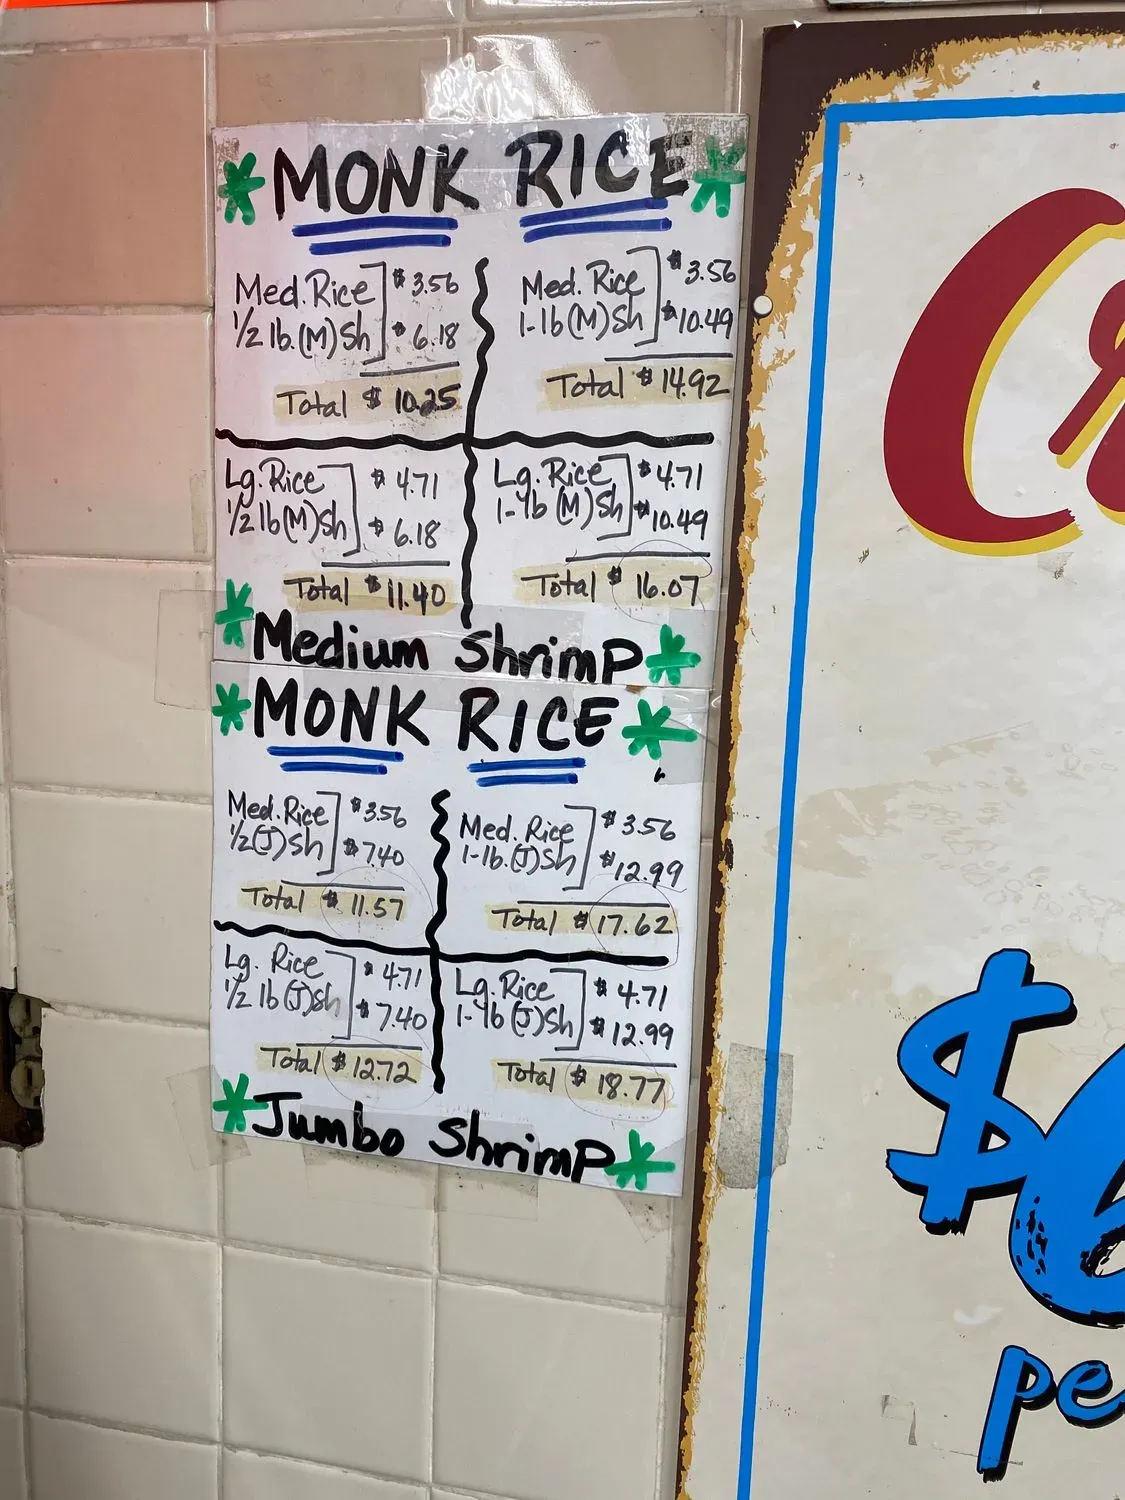 MONK RICE
Med. Rice $3.56
1/2 lb. (M) Sh $6.18
Total $10.25
Med. Rice $3.56
1-lb (M) Sh $10.49
Total $14.92
Lg. Rice $4.71
1/2 lb (M) Sh $6.18
Total $11.40
Lg. Rice $4.71
1-lb (M) Sh $10.49
Total $16.07
Medium Shrimp
MONK RICE
Med. Rice $3.56
1/2 (J) Sh $7.40
Total $11.57
Med. Rice $3.56
1-lb. (J) Sh $12.99
Total $17.62
Lg. Rice $4.71
1/2 lb (J) Sh $7.40
Total $12.72
Lg. Rice $4.71
1-lb (J) Sh $12.99
Total $18.77
Jumbo Shrimp
$6
pe